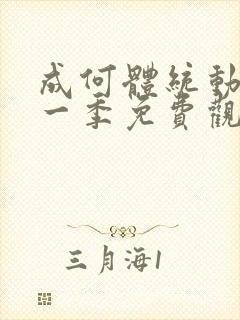 成何體統動
一季免費觀
三月海1